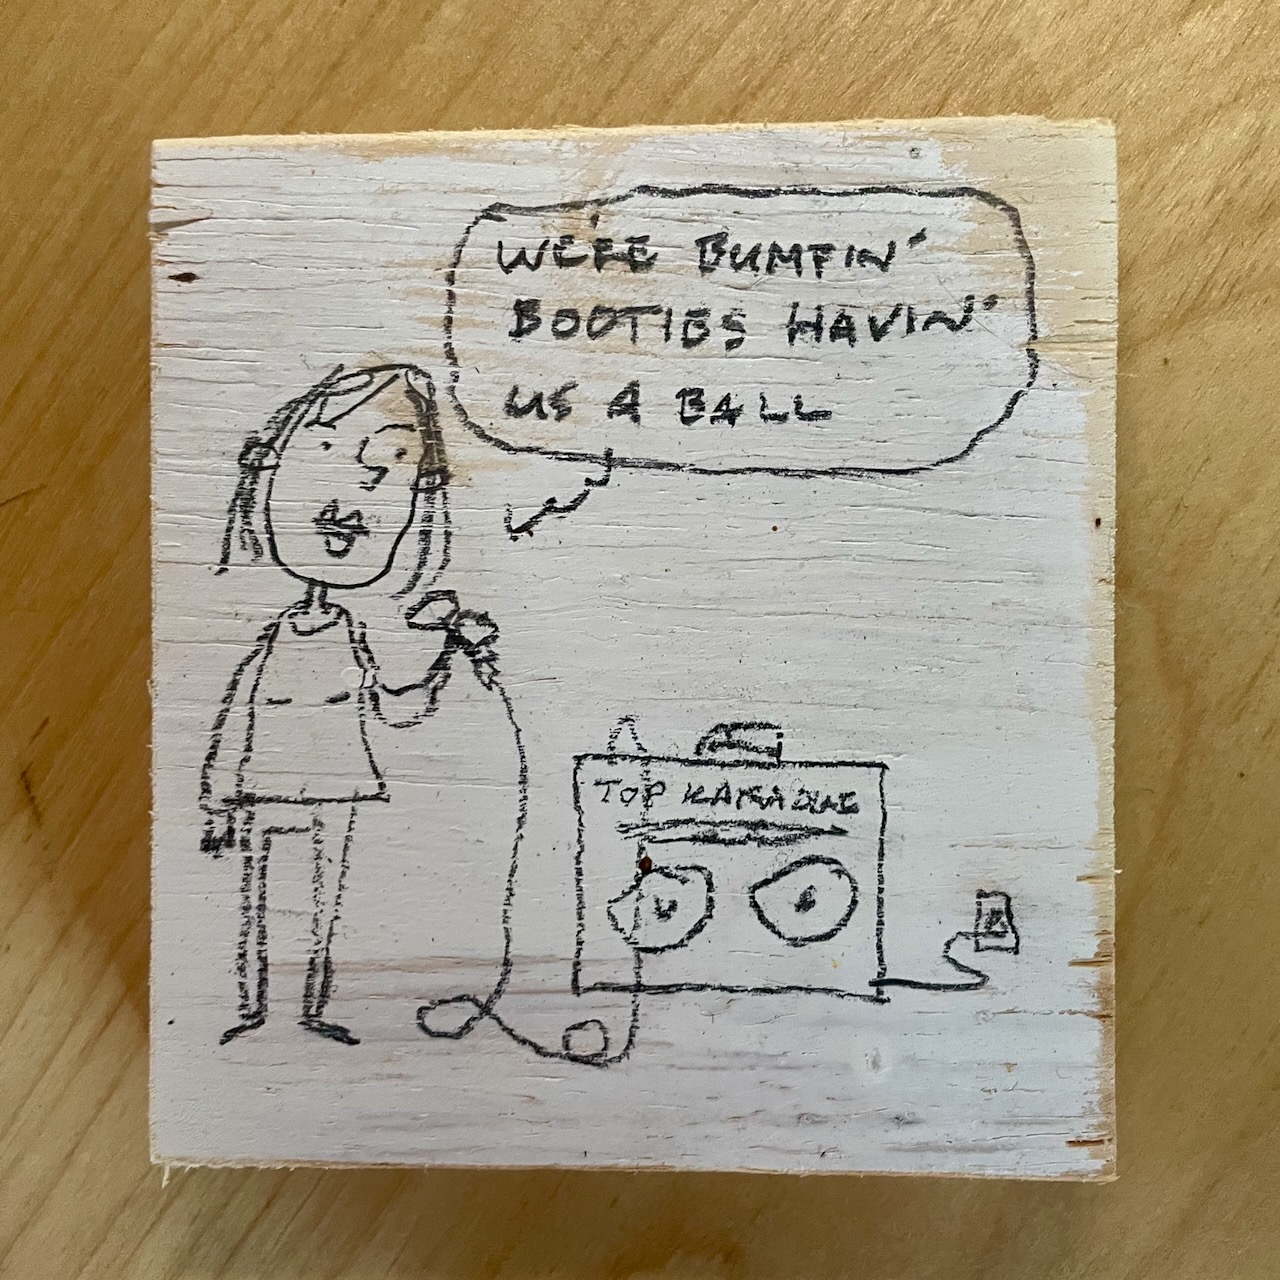 WE'RE BUMPIN'
BOOTIES HAVIN'
US A BALL
TOP KARAOKE